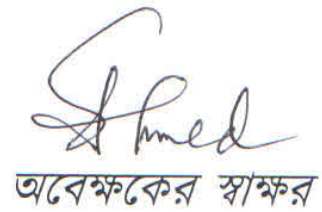 Ahmed
অবেক্ষকের স্বাক্ষর